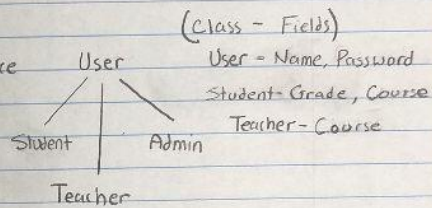 (Class - Fields)
User
User - Name, Password
Student - Grade, Course
Teacher - Course
Student
Admin
Teacher